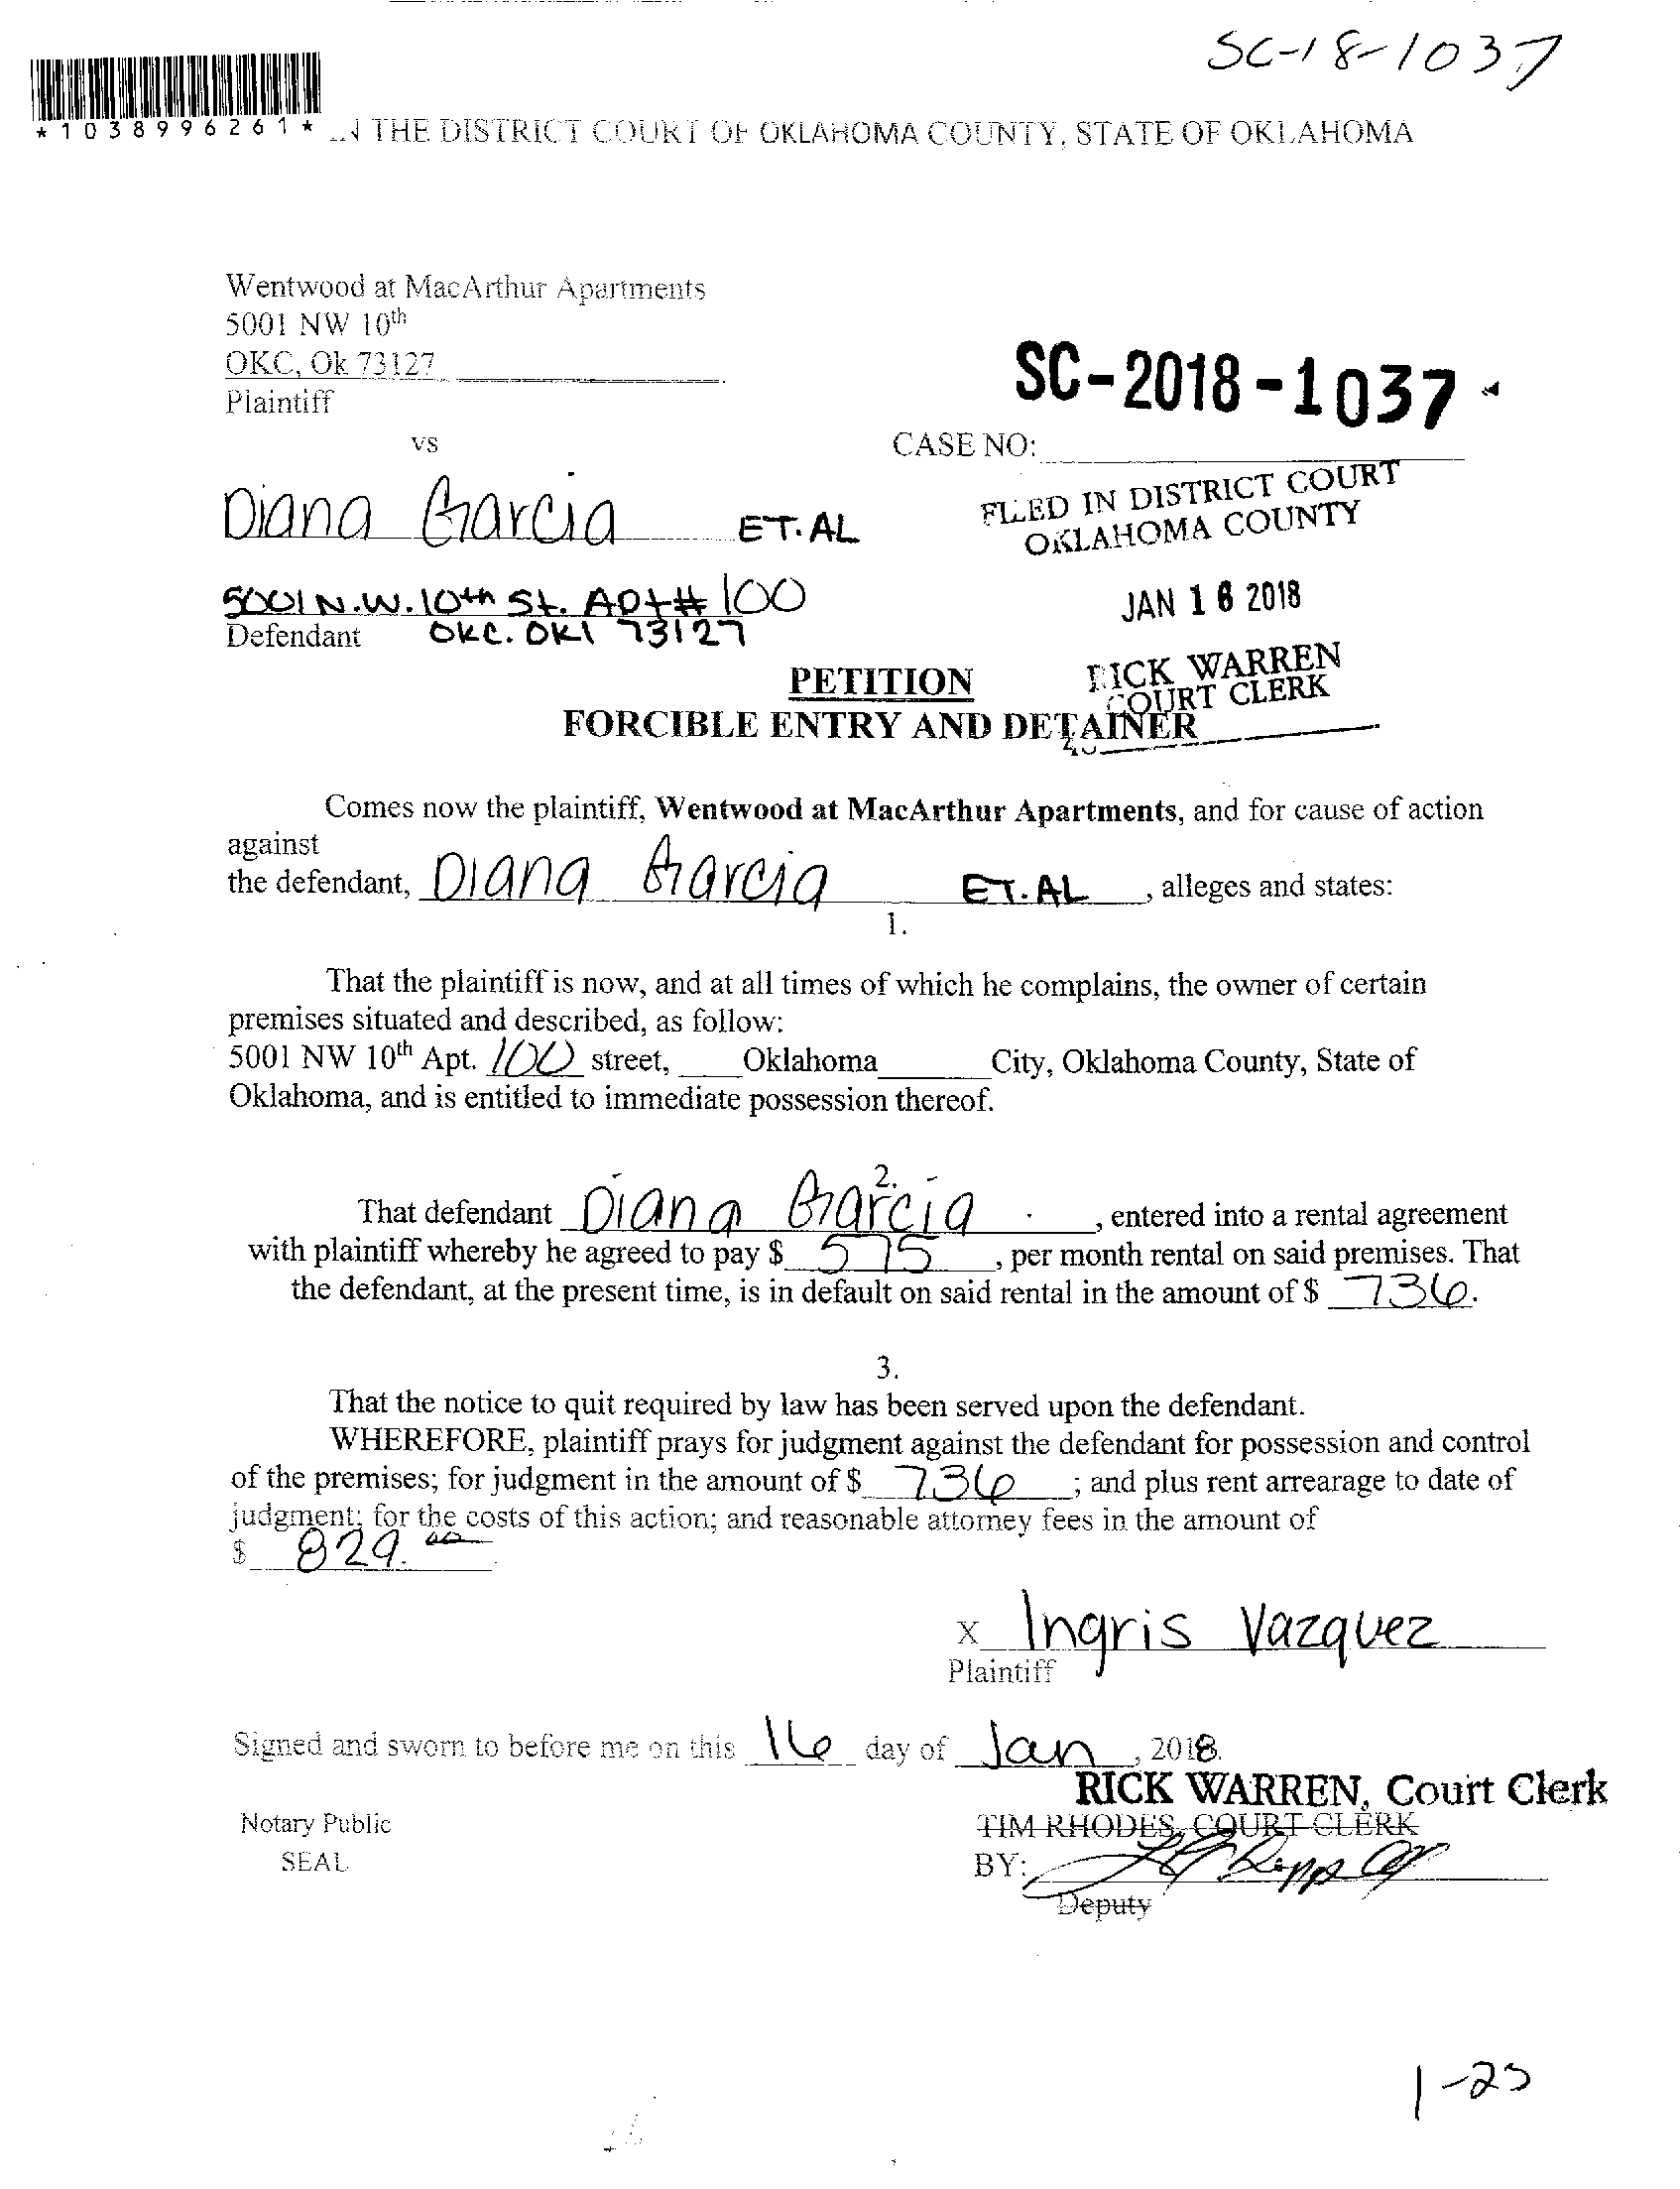 SC-18-1037
*1038996261* THE DISTRICT COURT OF OKLAHOMA COUNTY, STATE OF OKLAHOMA
Wentwood at MacArthur Apartments
5001 NW 10th
OKC, Ok 73127
Plaintiff
SC-2018-1037
vs
CASE NO:
Diana Garcia ET.AL
FILED IN DISTRICT COURT
OKLAHOMA COUNTY
5001 N.W. 10th St. Apt# 100
JAN 16 2018
Defendant OKC. OKl 73127
RICK WARREN
COURT CLERK
PETITION
FORCIBLE ENTRY AND DETAINER
Comes now the plaintiff, Wentwood at MacArthur Apartments, and for cause of action
against
the defendant, Diana Garcia ET.AL , alleges and states:
1.
That the plaintiff is now, and at all times of which he complains, the owner of certain
premises situated and described, as follow:
5001 NW 10th Apt. 100 street, Oklahoma City, Oklahoma County, State of
Oklahoma, and is entitled to immediate possession thereof.
2.
That defendant Diana Garcia , entered into a rental agreement
with plaintiff whereby he agreed to pay $ 575 , per month rental on said premises. That
the defendant, at the present time, is in default on said rental in the amount of $ 736.
3.
That the notice to quit required by law has been served upon the defendant.
WHEREFORE, plaintiff prays for judgment against the defendant for possession and control
of the premises; for judgment in the amount of $ 736 ; and plus rent arrearage to date of
judgment; for the costs of this action; and reasonable attorney fees in the amount of
$ 829.00
x Ingris Vazquez
Plaintiff
Signed and sworn to before me on this 16 day of Jan , 2018.
RICK WARREN, Court Clerk
Notary Public
TIM RHODES, COURT CLERK
SEAL
BY:
Deputy
1-25